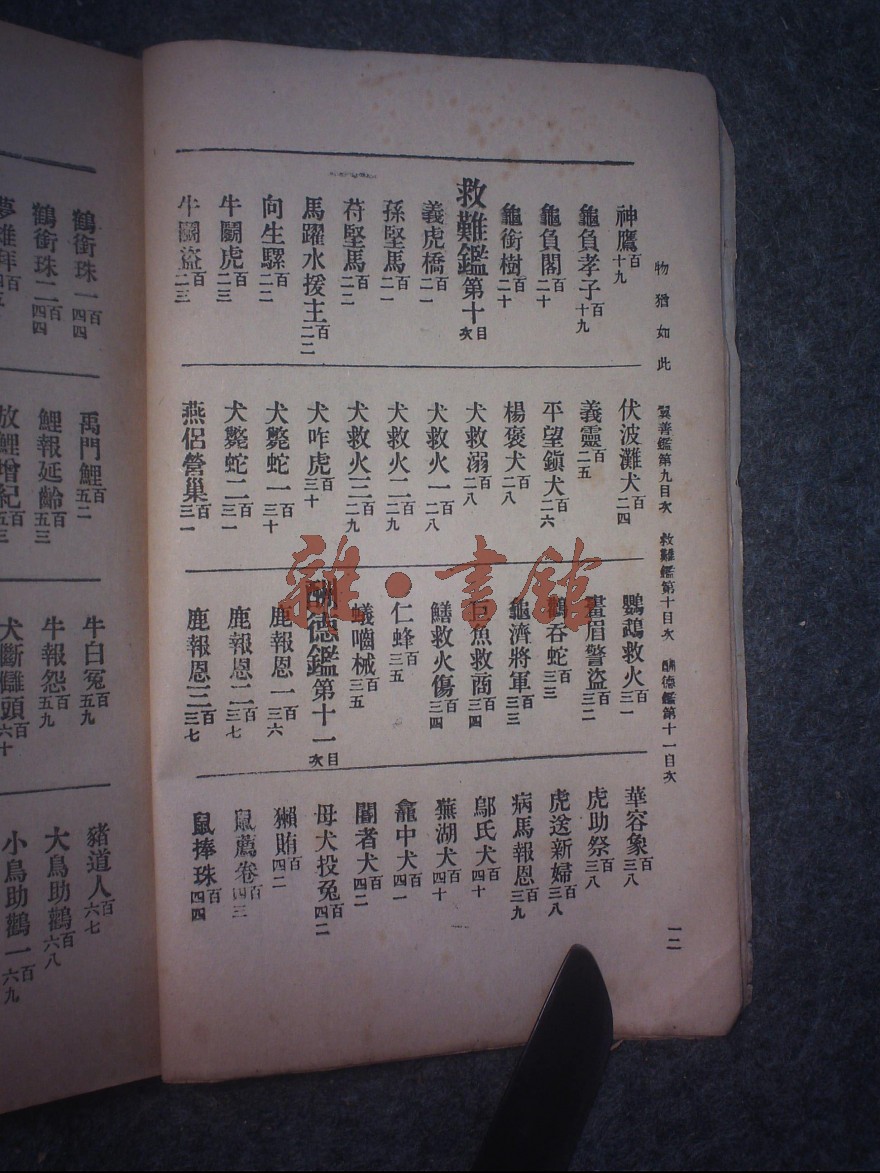 物猶如此 翼善鑑第九目次 救難鑑第十目次 酬德鑑第十一目次
一二
神鷹百十九
龜負孝子百十九
龜負閣百二十
龜銜樹百二十
救難鑑第十目次
義虎橋百二一
孫堅馬百二一
苻堅馬百二二
馬躍水援主百二二
向生騾百二二
牛鬭虎百二三
牛鬭盜百二三
伏波灘犬百二四
義靈百二五
平望鎮犬百二六
楊褒犬百二八
犬救溺百二八
犬救火一百二八
犬救火二百二九
犬救火三百二九
犬咋虎百三十
犬斃蛇一百三十
犬斃蛇二百三一
燕侶營巢百三一
鸚鵡救火百三一
畫眉警盜百三二
鶴吞蛇百三三
龜濟將軍百三三
巨魚救商百三四
鱔救火傷百三四
仁蜂百三五
蟻嚙械百三五
酬德鑑第十一目次
鹿報恩一百三六
鹿報恩二百三七
鹿報恩三百三七
華容象百三八
虎助祭百三八
虎送新婦百三八
病馬報恩百三九
鄔氏犬百四十
蕪湖犬百四十
龕中犬百四一
閽者犬百四二
母犬投兔百四二
獺賄百四二
鼠薦卷百四三
鼠捧珠百四四
鶴銜珠一百四四
鶴銜珠二百四四
禹門鯉百五二
鯉報延齡百五三
放鯉增紀百五三
牛白冤百五九
牛報怨百五九
犬斷讎頭百六十
豬道人百六七
大鳥助鸛百六八
小鳥助鸛一百六九
雜·書館